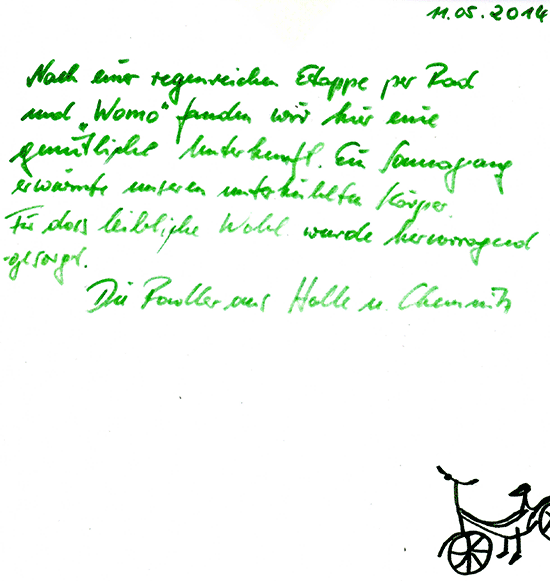 11.05.2014
Nach einer regenreichen Etappe per Rad
und „Womo“ fanden wir hier eine
gemütliche Unterkunft. Ein Saunagang
erwärmte unseren unterkühlten Körper.
Für das leibliche Wohl wurde hervorragend
gesorgt.
Die Radler aus Halle u. Chemnitz